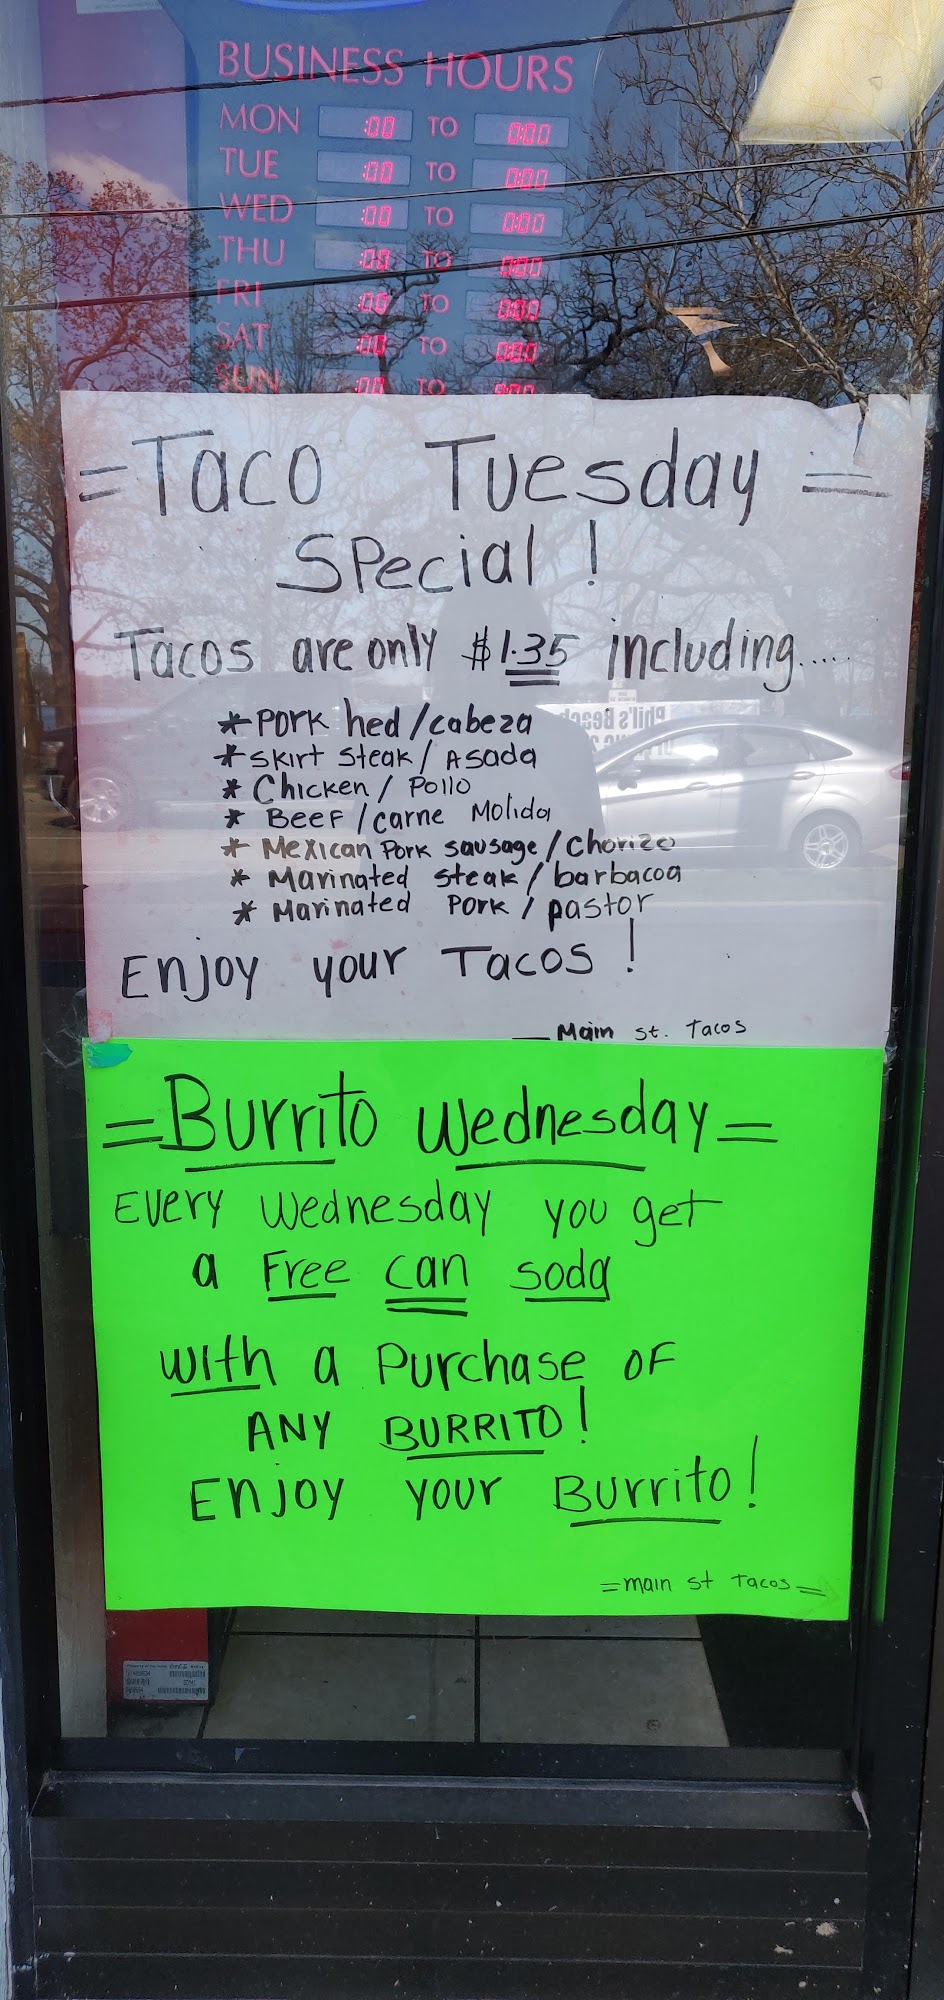 BUSINESS HOURS
MON :00 TO 0:00
TUE :00 TO 0:00
WED :00 TO 0:00
THU :00 TO 0:00
FRI :00 TO 0:00
SAT :00 TO 0:00
SUN :00 TO 0:00
=Taco Tuesday=
Special !
Tacos are only $1.35 including.....
* Pork hed/cabeza
* Skirt steak/ Asada
* Chicken/ Pollo
* Beef/carne Molida
* Mexican Pork sausage/Chorizo
* Marinated steak/barbacoa
* Marinated Pork/pastor
Enjoy your Tacos !
— Main st. Tacos
=Burrito Wednesday=
Every Wednesday you get
a Free can soda
with a Purchase of
ANY BURRITO!
Enjoy your Burrito!
=main st Tacos=
Phil's Beach